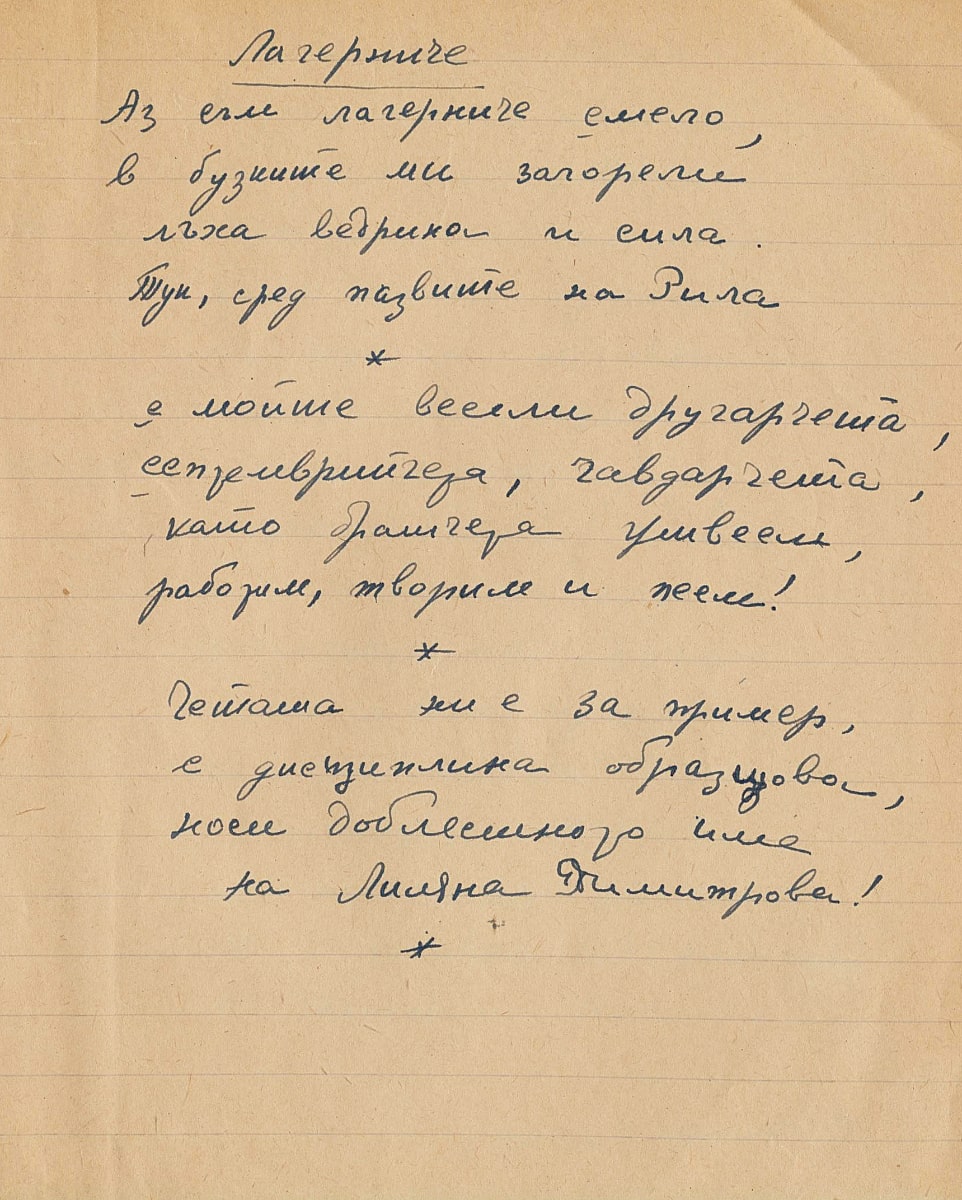 Лагерниче
Аз съм лагерниче смело,
в бузките ми загорели
лъха ведрина и сила.
Тук, сред пазвите на Рила
*
с мойте весели другарчета,
септемврийчета, чавдарчета,
като братчета живеем,
работим, творим и пеем!
*
Четата ни е за пример,
с дисциплина образцова,
носи доблестното име
на Лиляна Димитрова!
*